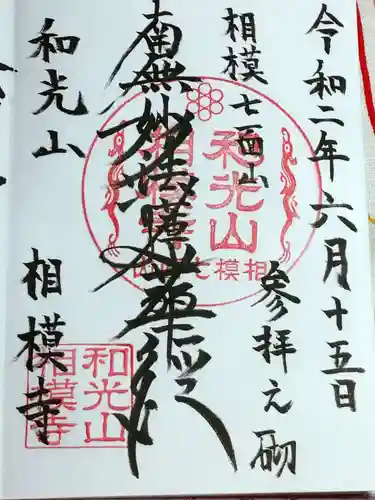 令和二年六月十五日
参拝之砌
相模七面山
南無妙法蓮華経
和光山
相模寺
和光山
相模寺
相模七面山
和光山
相模寺